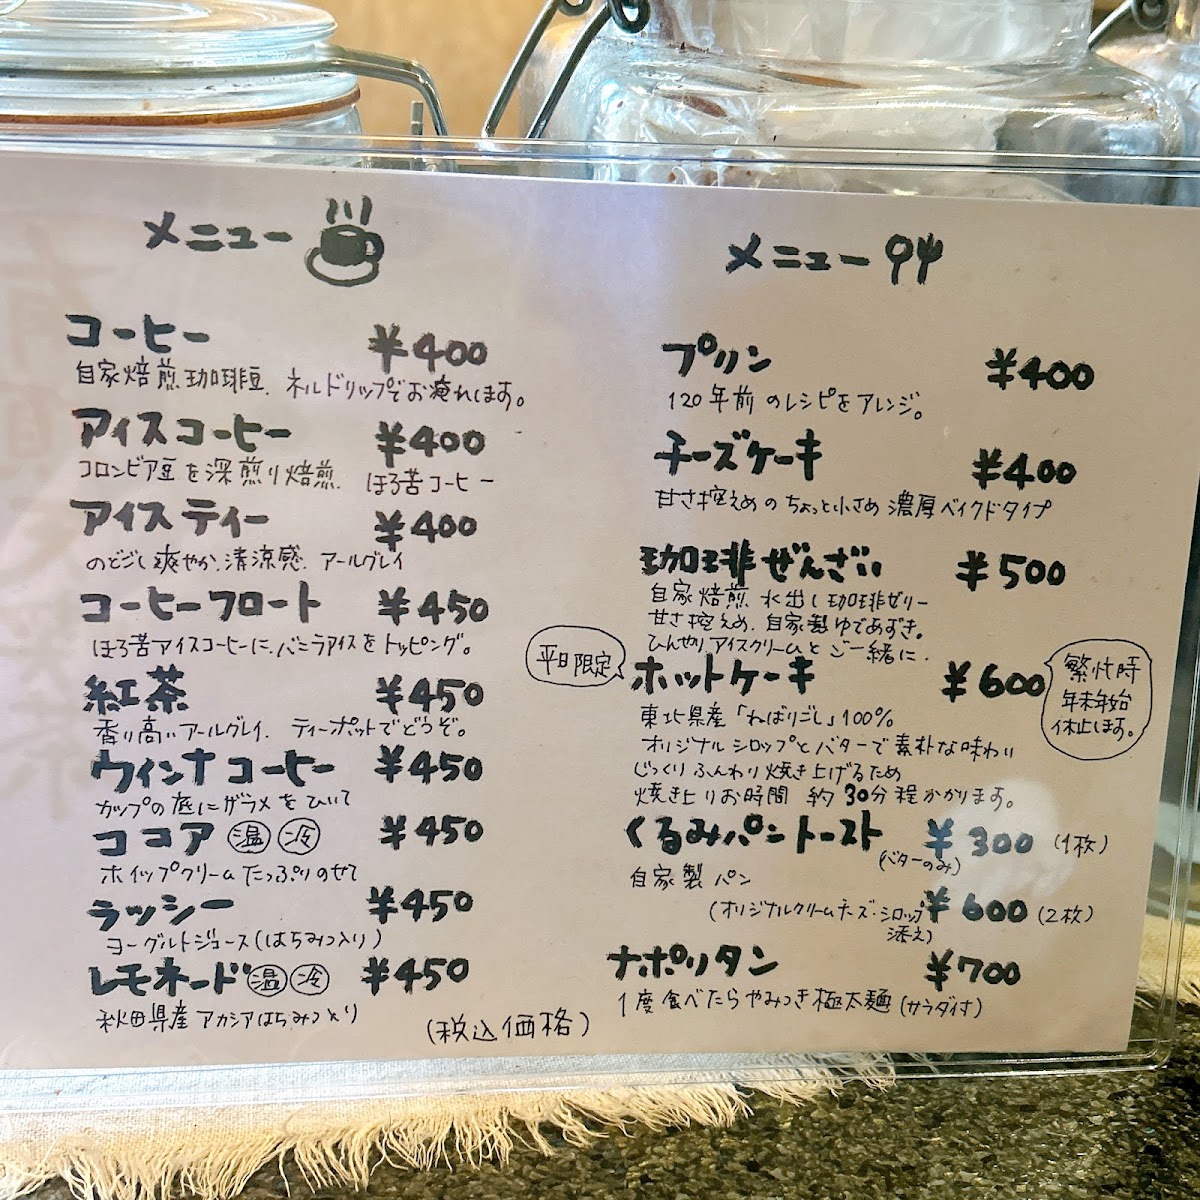 メニュー
コーヒー ¥400
自家焙煎珈琲豆、ネルドリップでお淹れします。
アイスコーヒー ¥400
コロンビア豆を深煎り焙煎、ほろ苦コーヒー
アイスティー ¥400
のどごし爽やか、清涼感、アールグレイ
コーヒーフロート ¥450
ほろ苦アイスコーヒーに、バニラアイスをトッピング。
紅茶 ¥450
香り高いアールグレイ、ティーポットでどうぞ。
ウィンナコーヒー ¥450
カップの底にザラメをひいて
ココア 温 冷 ¥450
ホイップクリームたっぷりのせて
ラッシー ¥450
ヨーグルトジュース(はちみつ入り)
レモネード 温 冷 ¥450
秋田県産アカシアはちみつ入り
(税込価格)
メニュー
プリン ¥400
120年前のレシピをアレンジ。
チーズケーキ ¥400
甘さ控えめのちょっと小さめ濃厚ベイクドタイプ
珈琲ぜんざい ¥500
自家焙煎 水出し珈琲ゼリー
甘さ控えめ、自家製ゆであずき。
ひんやりアイスクリームとご一緒に、
平日限定
ホットケーキ ¥600
繁忙時
年末年始
休止します。
東北県産「ねばりごし」100%
オリジナルシロップとバターで素朴な味わい
じっくりふんわり焼き上げるため
焼き上りお時間 約30分程かかります。
くるみパントースト ¥300 (1枚)
(バターのみ)
自家製パン
¥600 (2枚)
(オリジナルクリームチーズ・シロップ
添え)
ナポリタン ¥700
1度食べたらやみつき極太麺(サラダ付)